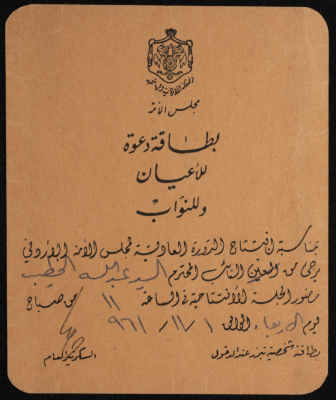 المملكة الأردنية الهاشمية
مجلس الأمة
بطاقة دعوة
للأعيان
وللنواب
بمناسبة افتتاح الدورة العادية لمجلس الأمة الأردني
يرجى من المعلين النائب المحترم السيد عبد الله الخطيب
حضور الجلسة الافتتاحية في الساعة ١١ من صباح
يوم الاربعاء الموافق ١ / ١١ / ٩٦١
السكرتير العام
بطاقة شخصية تبرز عند الدخول